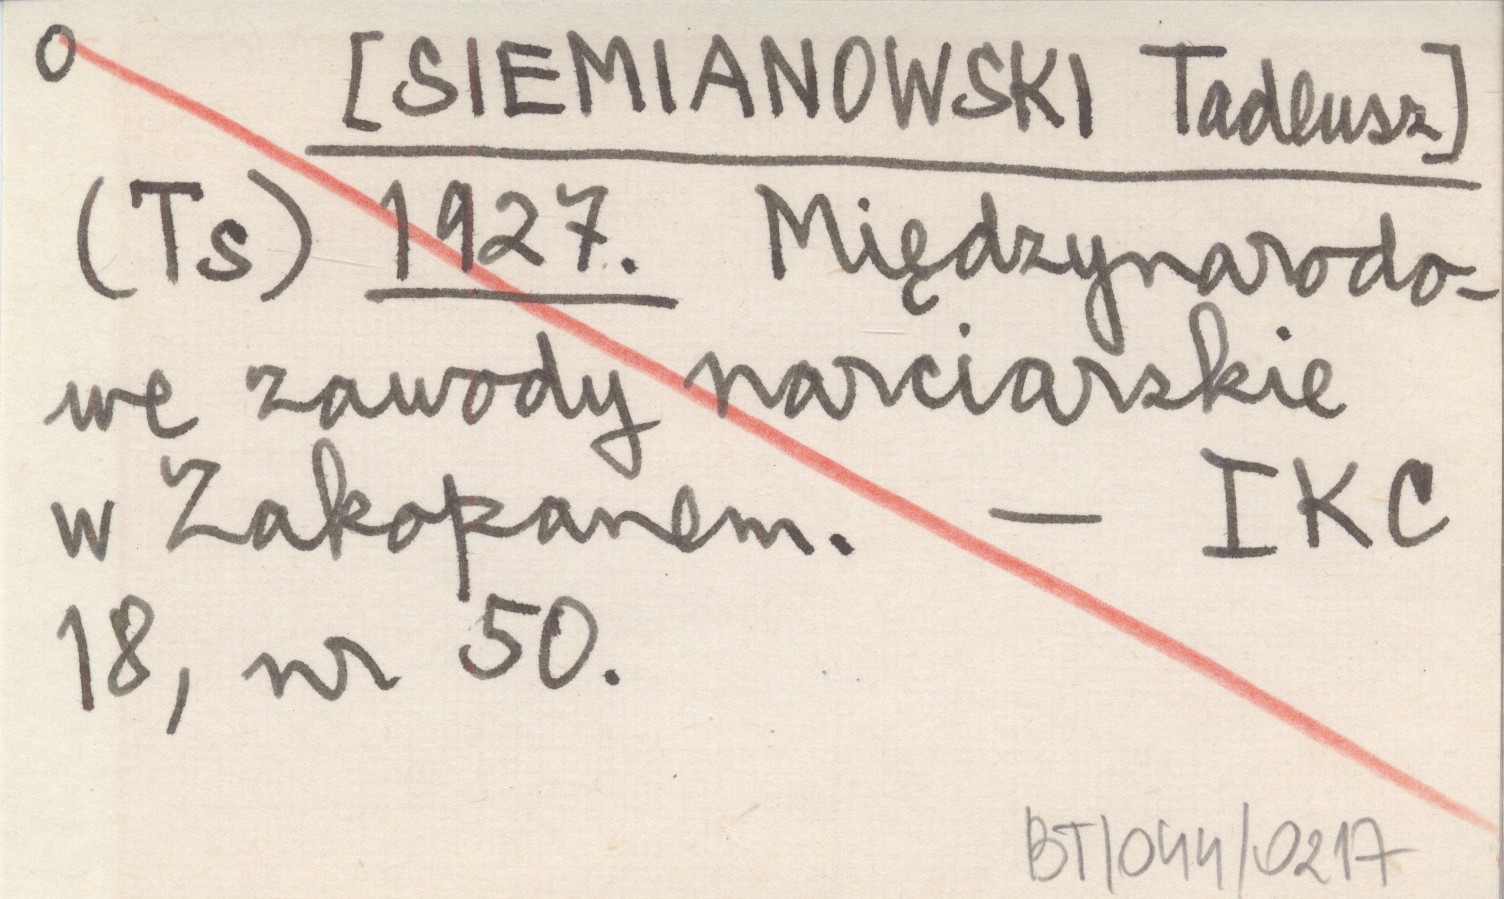 O [SIEMIANOWSKI Tadeusz]
(Ts) 1927. Międzynarodo-
we zawody narciarskie
w Zakopanem. — IKC
18, nr 50.
BT/044/0217